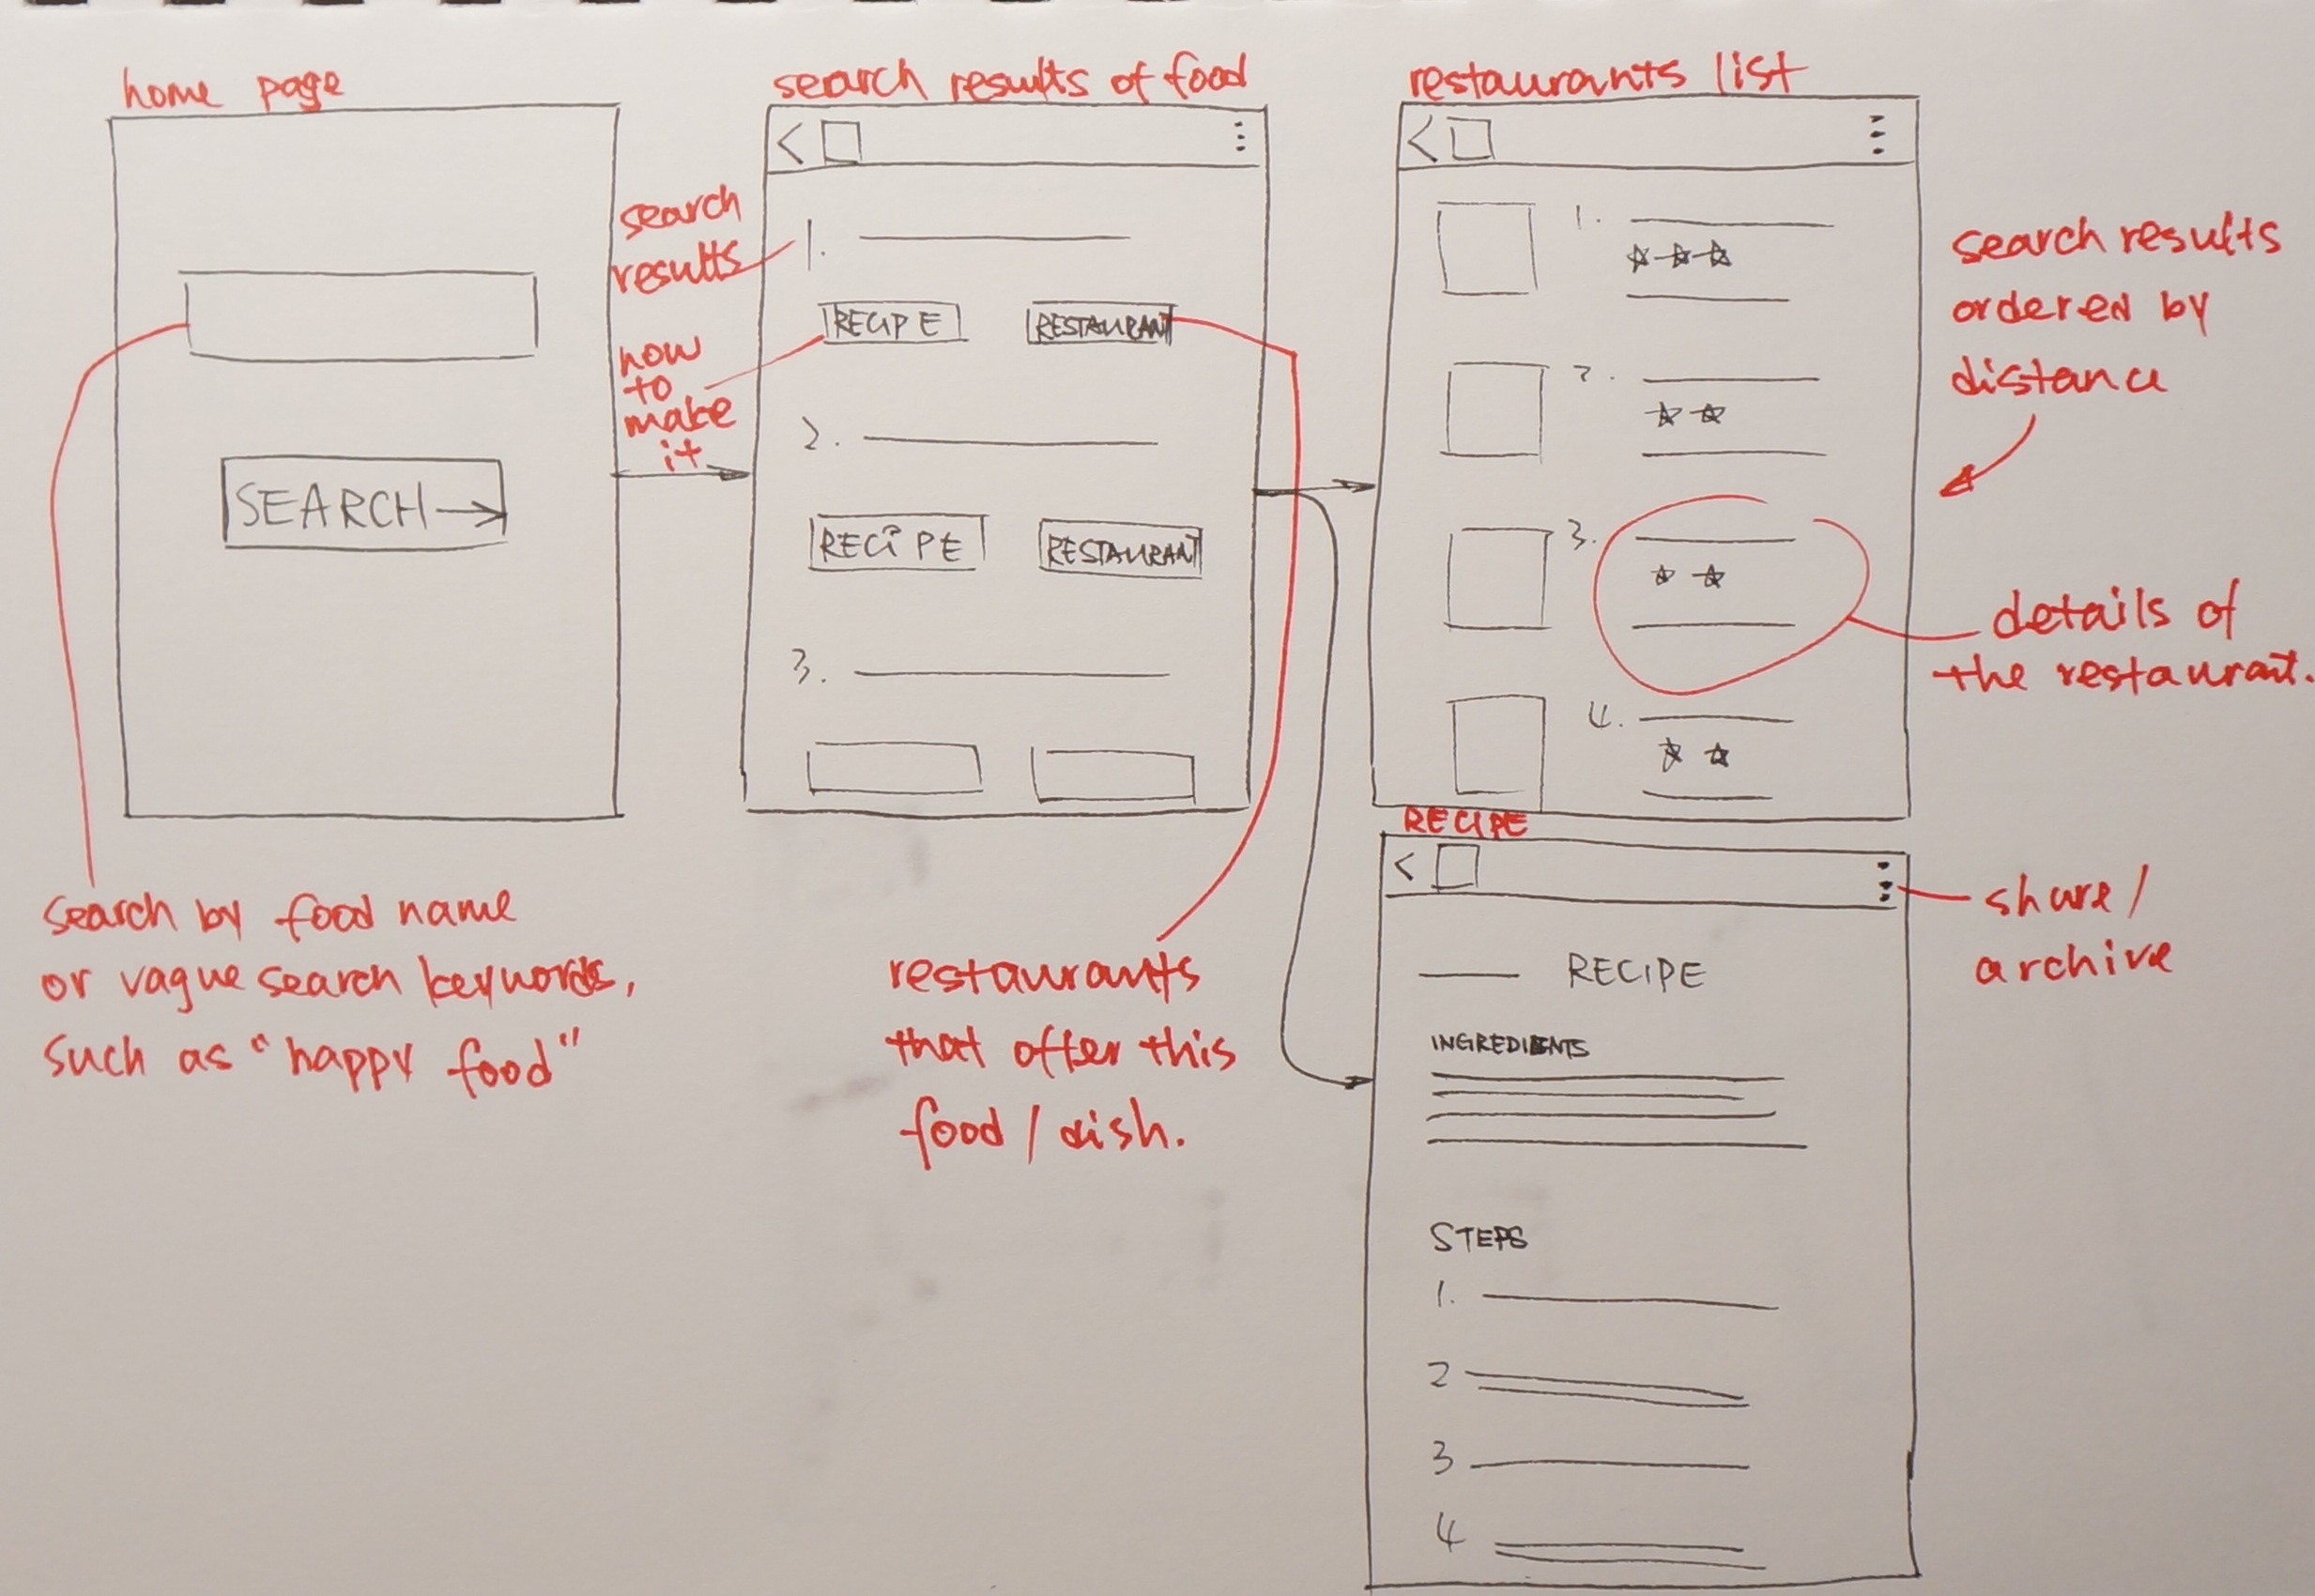 home page
SEARCH→
search by food name
or vague search keywords,
such as "happy food"
search results of food
search
results
how
to
make
it
1.
RECIPE
RESTAURANT
2.
RECIPE
RESTAURANT
3.
restaurants
that offer this
food / dish.
restaurants list
1.
2.
3.
4.
search results
ordered by
distance
details of
the restaurant.
RECIPE
share /
archive
RECIPE
INGREDIENTS
STEPS
1.
2
3
4